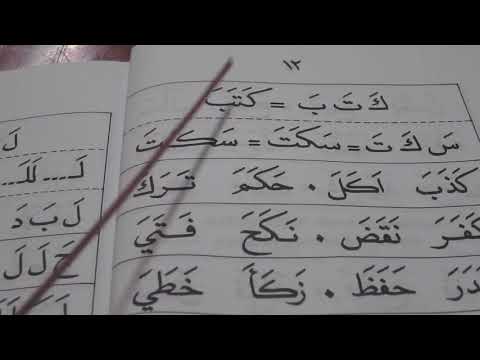 ١٢
كَ تَ بَ = كَتَبَ
سَ كَ تَ = سَكَتَ = سَكَتَ
كَذَبَ اَكَلَ . حَكَمَ تَرَكَ
كَفَرَ نَقَضَ . نَكَحَ فَتَيَ
حَفَظَ . زَكَأَ خَطَيَ
لَ
لَـ... لَلَـ...
لَ بَ دَ
حَ لَ لَ